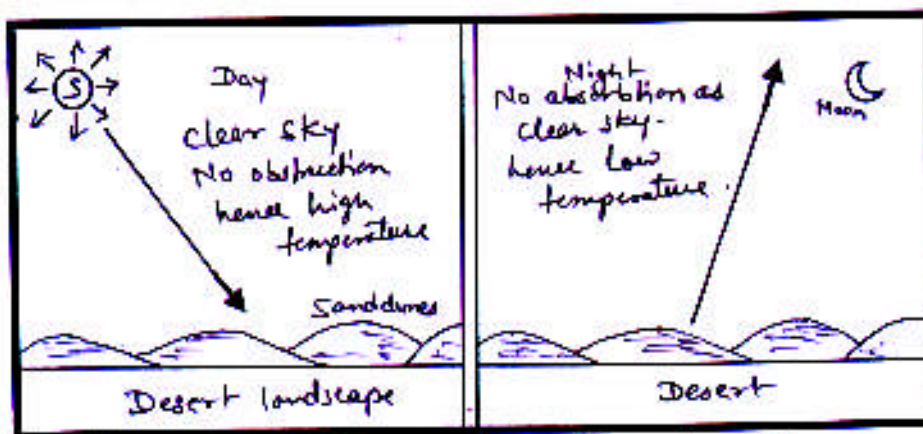 S
Day
Clear sky
No obstruction
hence high
temperature
Sanddunes
Desert landscape
Night
No absorbtion as
clear sky.
hence low
temperature.
Moon
Desert